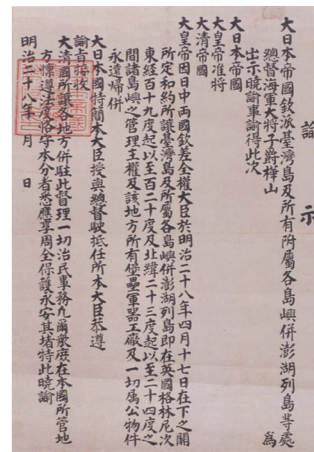 諭示
大日本帝國欽派臺灣島及所有附屬各島嶼併澎湖列島等處
總督海軍大將子爵樺山　為
出示曉諭事諭得此次
大日本帝國
大皇帝准將
大清帝國
大皇帝因日中兩國欽差全權大臣於明治二十八年四月十七日在下之關
所定和約所讓臺灣島及所屬各島嶼併澎湖列島即在英國格林尼次
東經百十九度起以至百二十度及北緯二十三度起以至二十四度之
間諸島嶼之管理主權及該地方所有堡壘軍器工廠及一切屬公物件
永遠歸併
大日本國特簡本大臣授與總督駛抵任所本大臣恭遵
諭旨接收
大清國所讓各地方併駐此督理一切治民事務凡爾眾庶在本國所管地
方懍遵法度恪守本分者悉應享周全保護永安其堵特此曉諭
明治二十八年　月　日